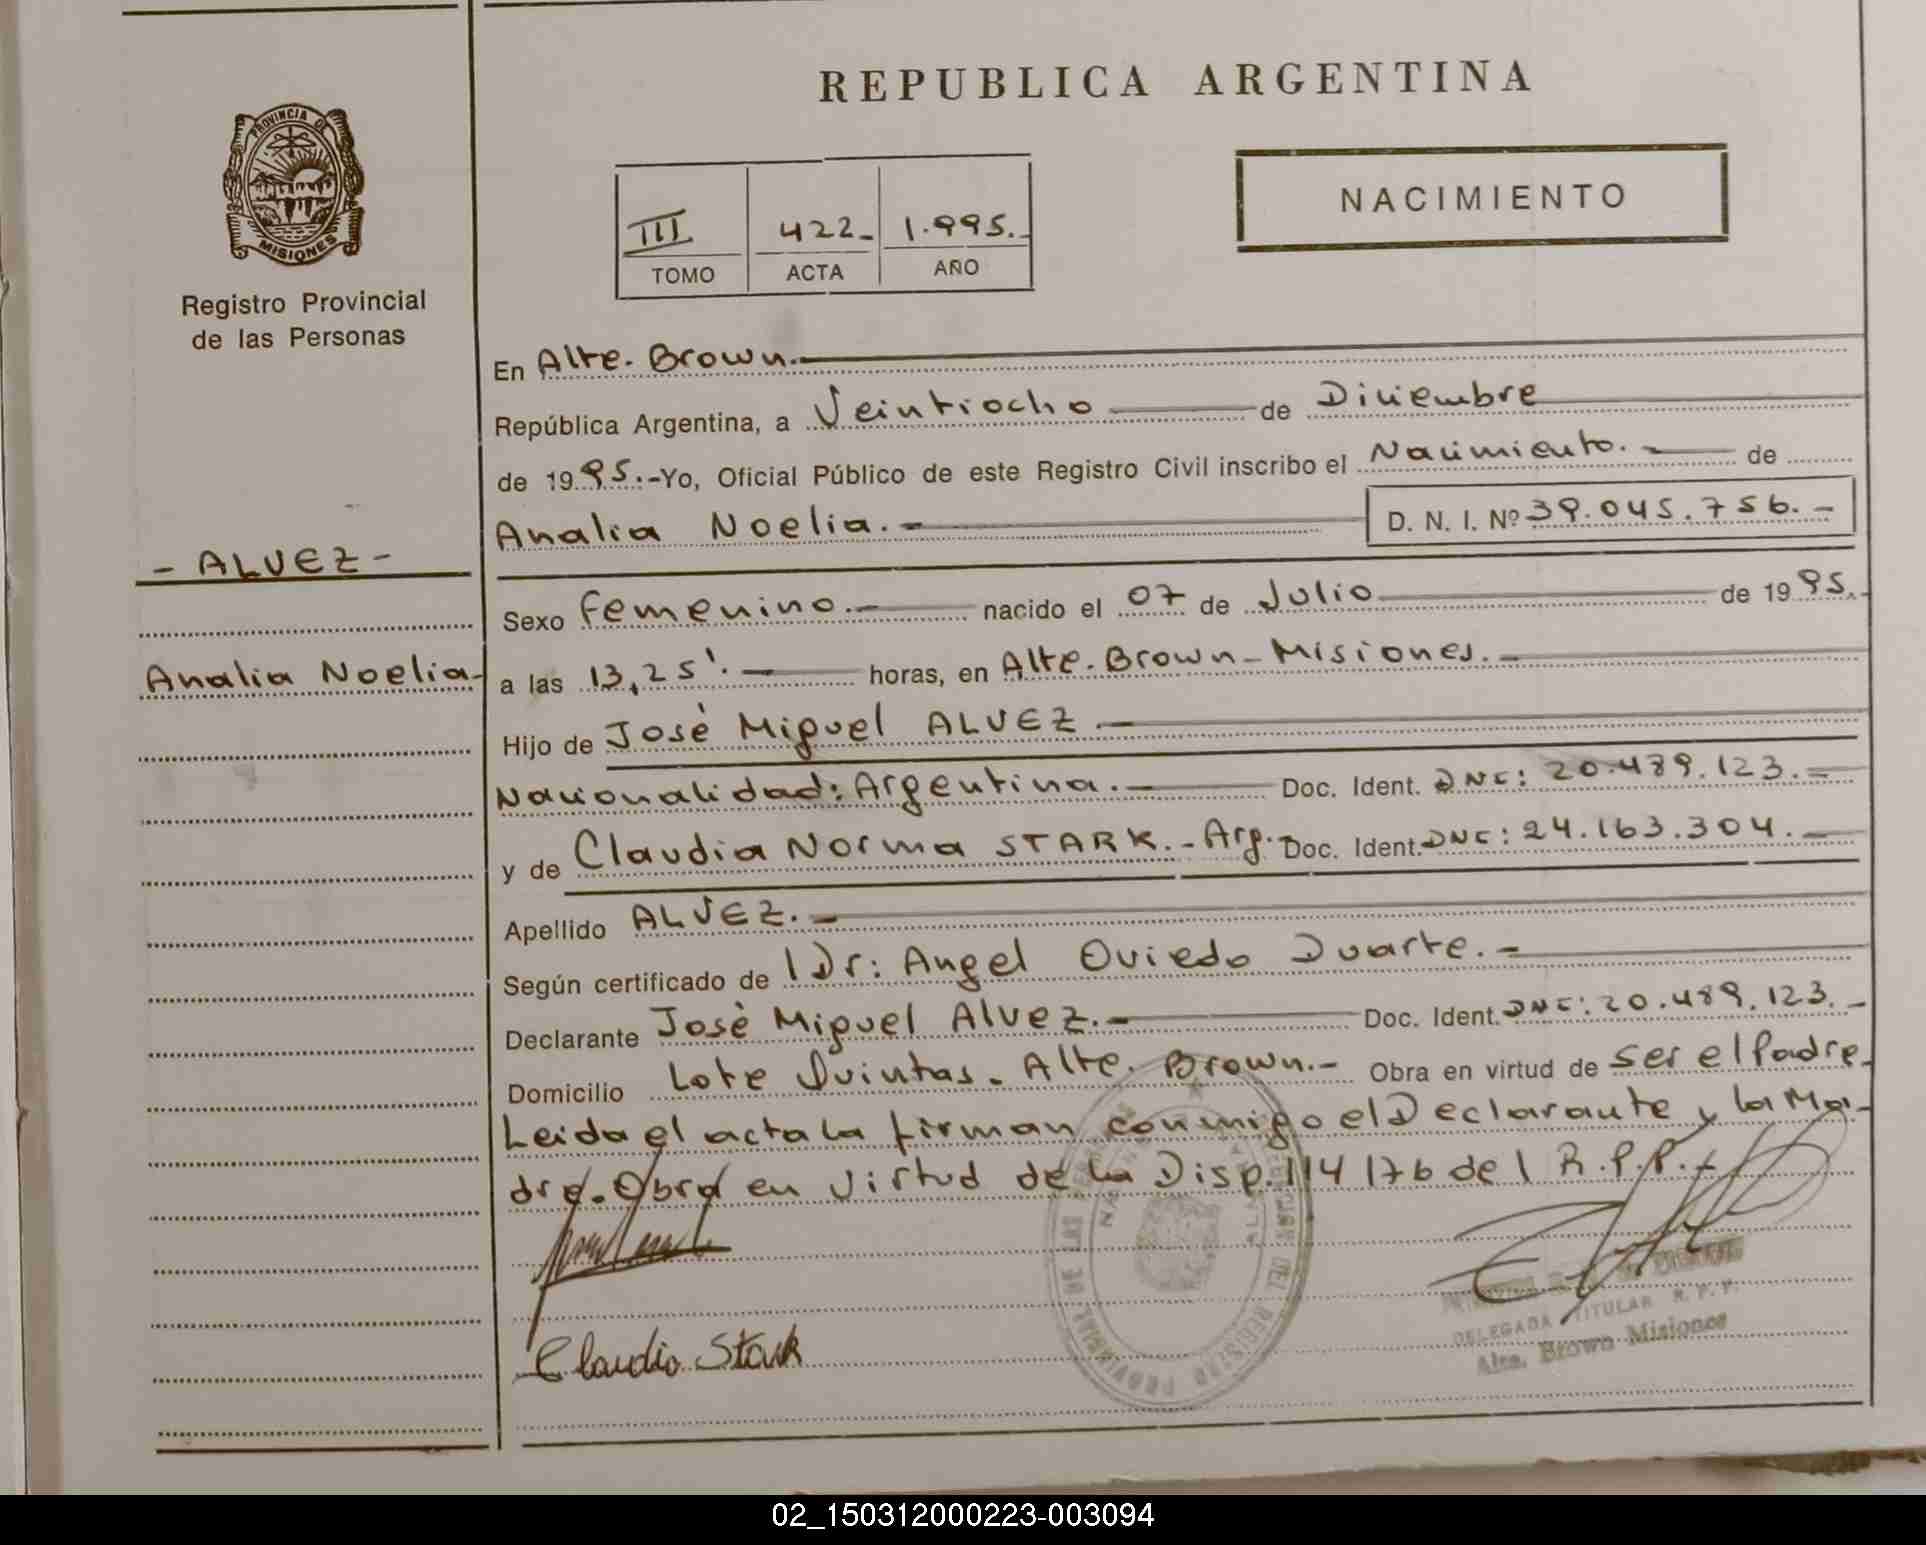 REPUBLICA ARGENTINA
PROVINCIA DE
MISIONES
Registro Provincial
de las Personas
III 422- 1.995.-
TOMO ACTA AÑO
NACIMIENTO
En Alte. Brown.-
República Argentina, a Veintiocho de Diciembre
de 1995.-Yo, Oficial Público de este Registro Civil inscribo el Nacimiento.- de
Analia Noelia.- D. N. I. Nº 39.045.756.-
- ALVEZ -
Sexo Femenino.- nacido el 07 de Julio de 1995.-
Analia Noelia-
a las 13,25'.- horas, en Alte. Brown - Misiones.-
Hijo de José Miguel ALVEZ.-
Nacionalidad: Argentina.- Doc. Ident. DNI: 20.489.123.-
y de Claudia Norma STARK.- Arg. Doc. Ident. DNI: 24.163.304.-
Apellido ALVEZ.-
Según certificado de Dr: Angel Oviedo Duarte.-
Declarante José Miguel Alvez.- Doc. Ident. DNI: 20.489.123.-
Domicilio Lote Quintas. Alte. Brown.- Obra en virtud de ser el Padre.
Leida el acta la firman conmigo el Declarante y la Ma-
dre. Obra en virtud de la Disp. 114/76 del R.P.P.-
DELEGADA TITULAR R.P.P.
Alte. Brown Misiones
Claudia Stark
02_150312000223-003094